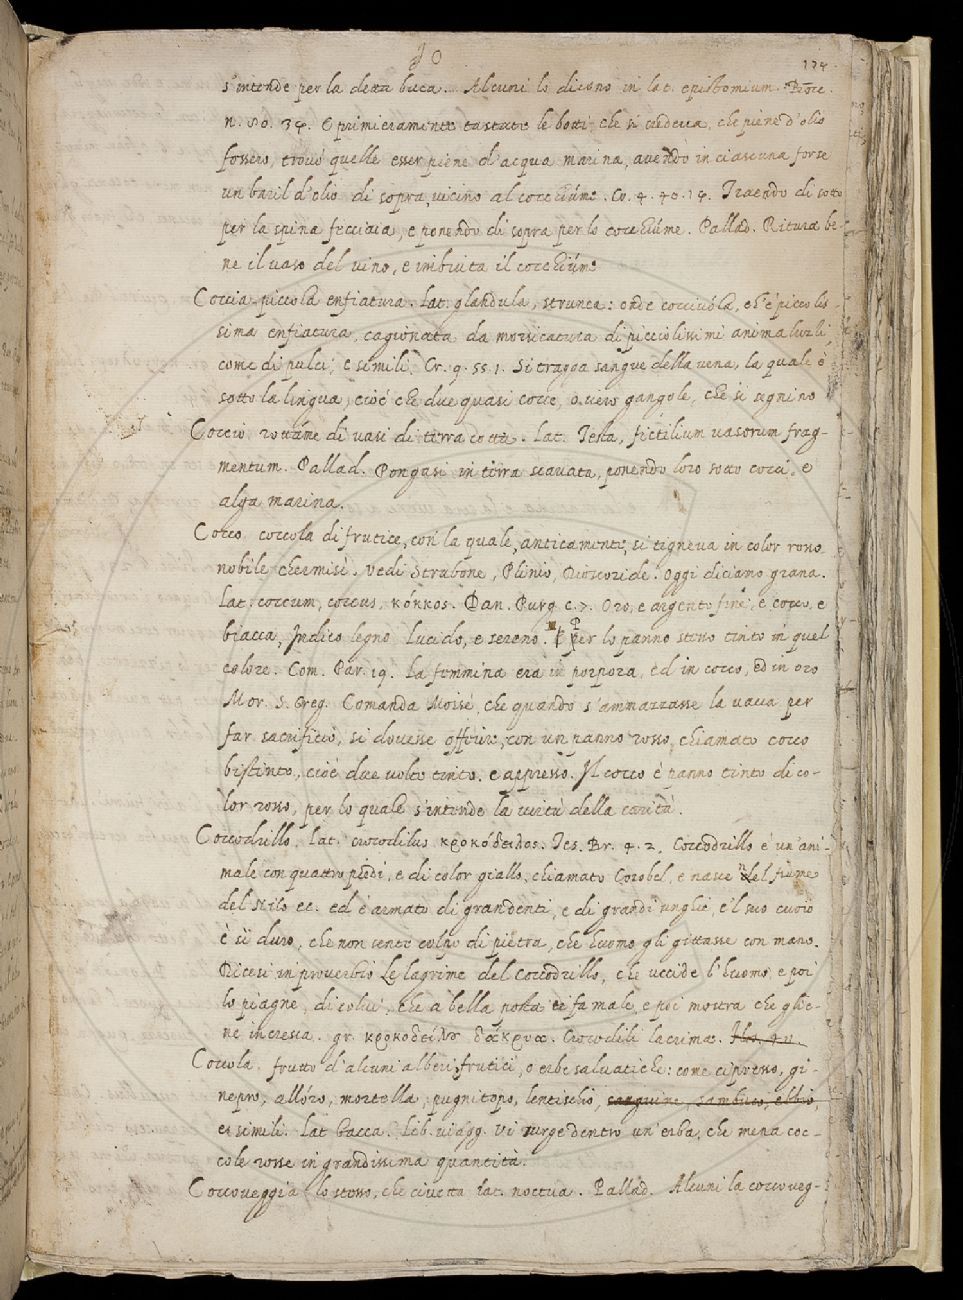 10
174
s'intende per la detta buca. Alcuni lo dicono in lat. epistomium. Bocc.
n. 80. 34. E primieramente tastate le botti, che si credeva, che piene d'olio
fossero, trovò quelle esser piene d'acqua marina, avendo in ciascuna forse
un baril d'olio di sopra, vicino al cocchiúme. Cr. 4. 40. 14. Traendo di sotto
per la spina fecciaia, e ponendo di sopra per lo cocchiúme. Pallad. Ritura be-
ne il vaso del vino, e imbiuta il cocchiúme
Coccia piccola enfiatura. Lat. glandula, strunca: onde cocciuóla, ch'è piccolis-
sima enfiatura, cagionata da morsicatura di piccolissimi animaluzzi,
come di pulci, e simili. Cr. 9. 55. 1. Si tragga sangue della vena, la quale è
sotto la lingua, cioè che due quasi cocce, o vero gangole, che si signino
Coccio rottáme di vasi di terra cotta. Lat. Testa, fictilium vasorum frag-
mentum. Pallad. Pongasi in terra scavata, ponendo loro sotto cocci, e
alga marina.
Cocco coccola di frutice, con la quale, anticamente, si tigneva in color rosso
nobile chermisì. Vedi Strabone, Plinio, Dioscoride. Oggi diciamo grana.
Lat. coccum, coccus, κόκκος. Dan. Purg. c. 7. Oro, e argento fine, e cocco, e
biacca, Indico legno lucido, e sereno. per lo panno stesso tinto in quel
colore. Com. Par. 19. La femmina era in porpora, ed in cocco, ed in oro
Mor. S. Greg. Comanda Moisè, che quando s'ammazzasse la vacca per
far sacrificio, si dovesse offrire, con un panno rosso, chiamato cocco
bistinto, cioè due volte tinto. e appresso. Il cocco è panno tinto di co-
lor rosso, per lo quale s'intende la virtù della carità.
Coccodrillo. Lat. crocodilus κροκόδειλος. Tes. Br. 4. 2. Coccodrillo è un'ani-
male con quattro piedi, e di color giallo, chiamato Corobel, e nasce nel fiume
del Nilo ec. ed è armato di gran denti, e di grandi unghie, e 'l suo cuoio
è sì duro, che non sente colpo di pietra, che huomo gli gittasse con mano.
Dicesi in proverbio Le lagrime del coccodrillo, che uccide l'huomo, e poi
lo piagne, di colui, che a bella posta ti fa male, e poi mostra che glie-
ne incresca. gr. κροκοδείλου δάκρυα. Crocodili lacrima.
Coccola. frutto d'alcuni alberi, frutici, o erbe salvatiche: come cipresso, gi-
nepro, allóro, mortella, pugnitopo, lentischio, sanguine, sambuco, ebbio,
e simili. Lat. bacca. Lib. viagg. Vi surge dentro un'erba, che mena coc-
cole rosse in grandissima quantità.
Coccoveggia lo stesso, che civetta Lat. noctua. Pallad. Alcuni la coccoveg-